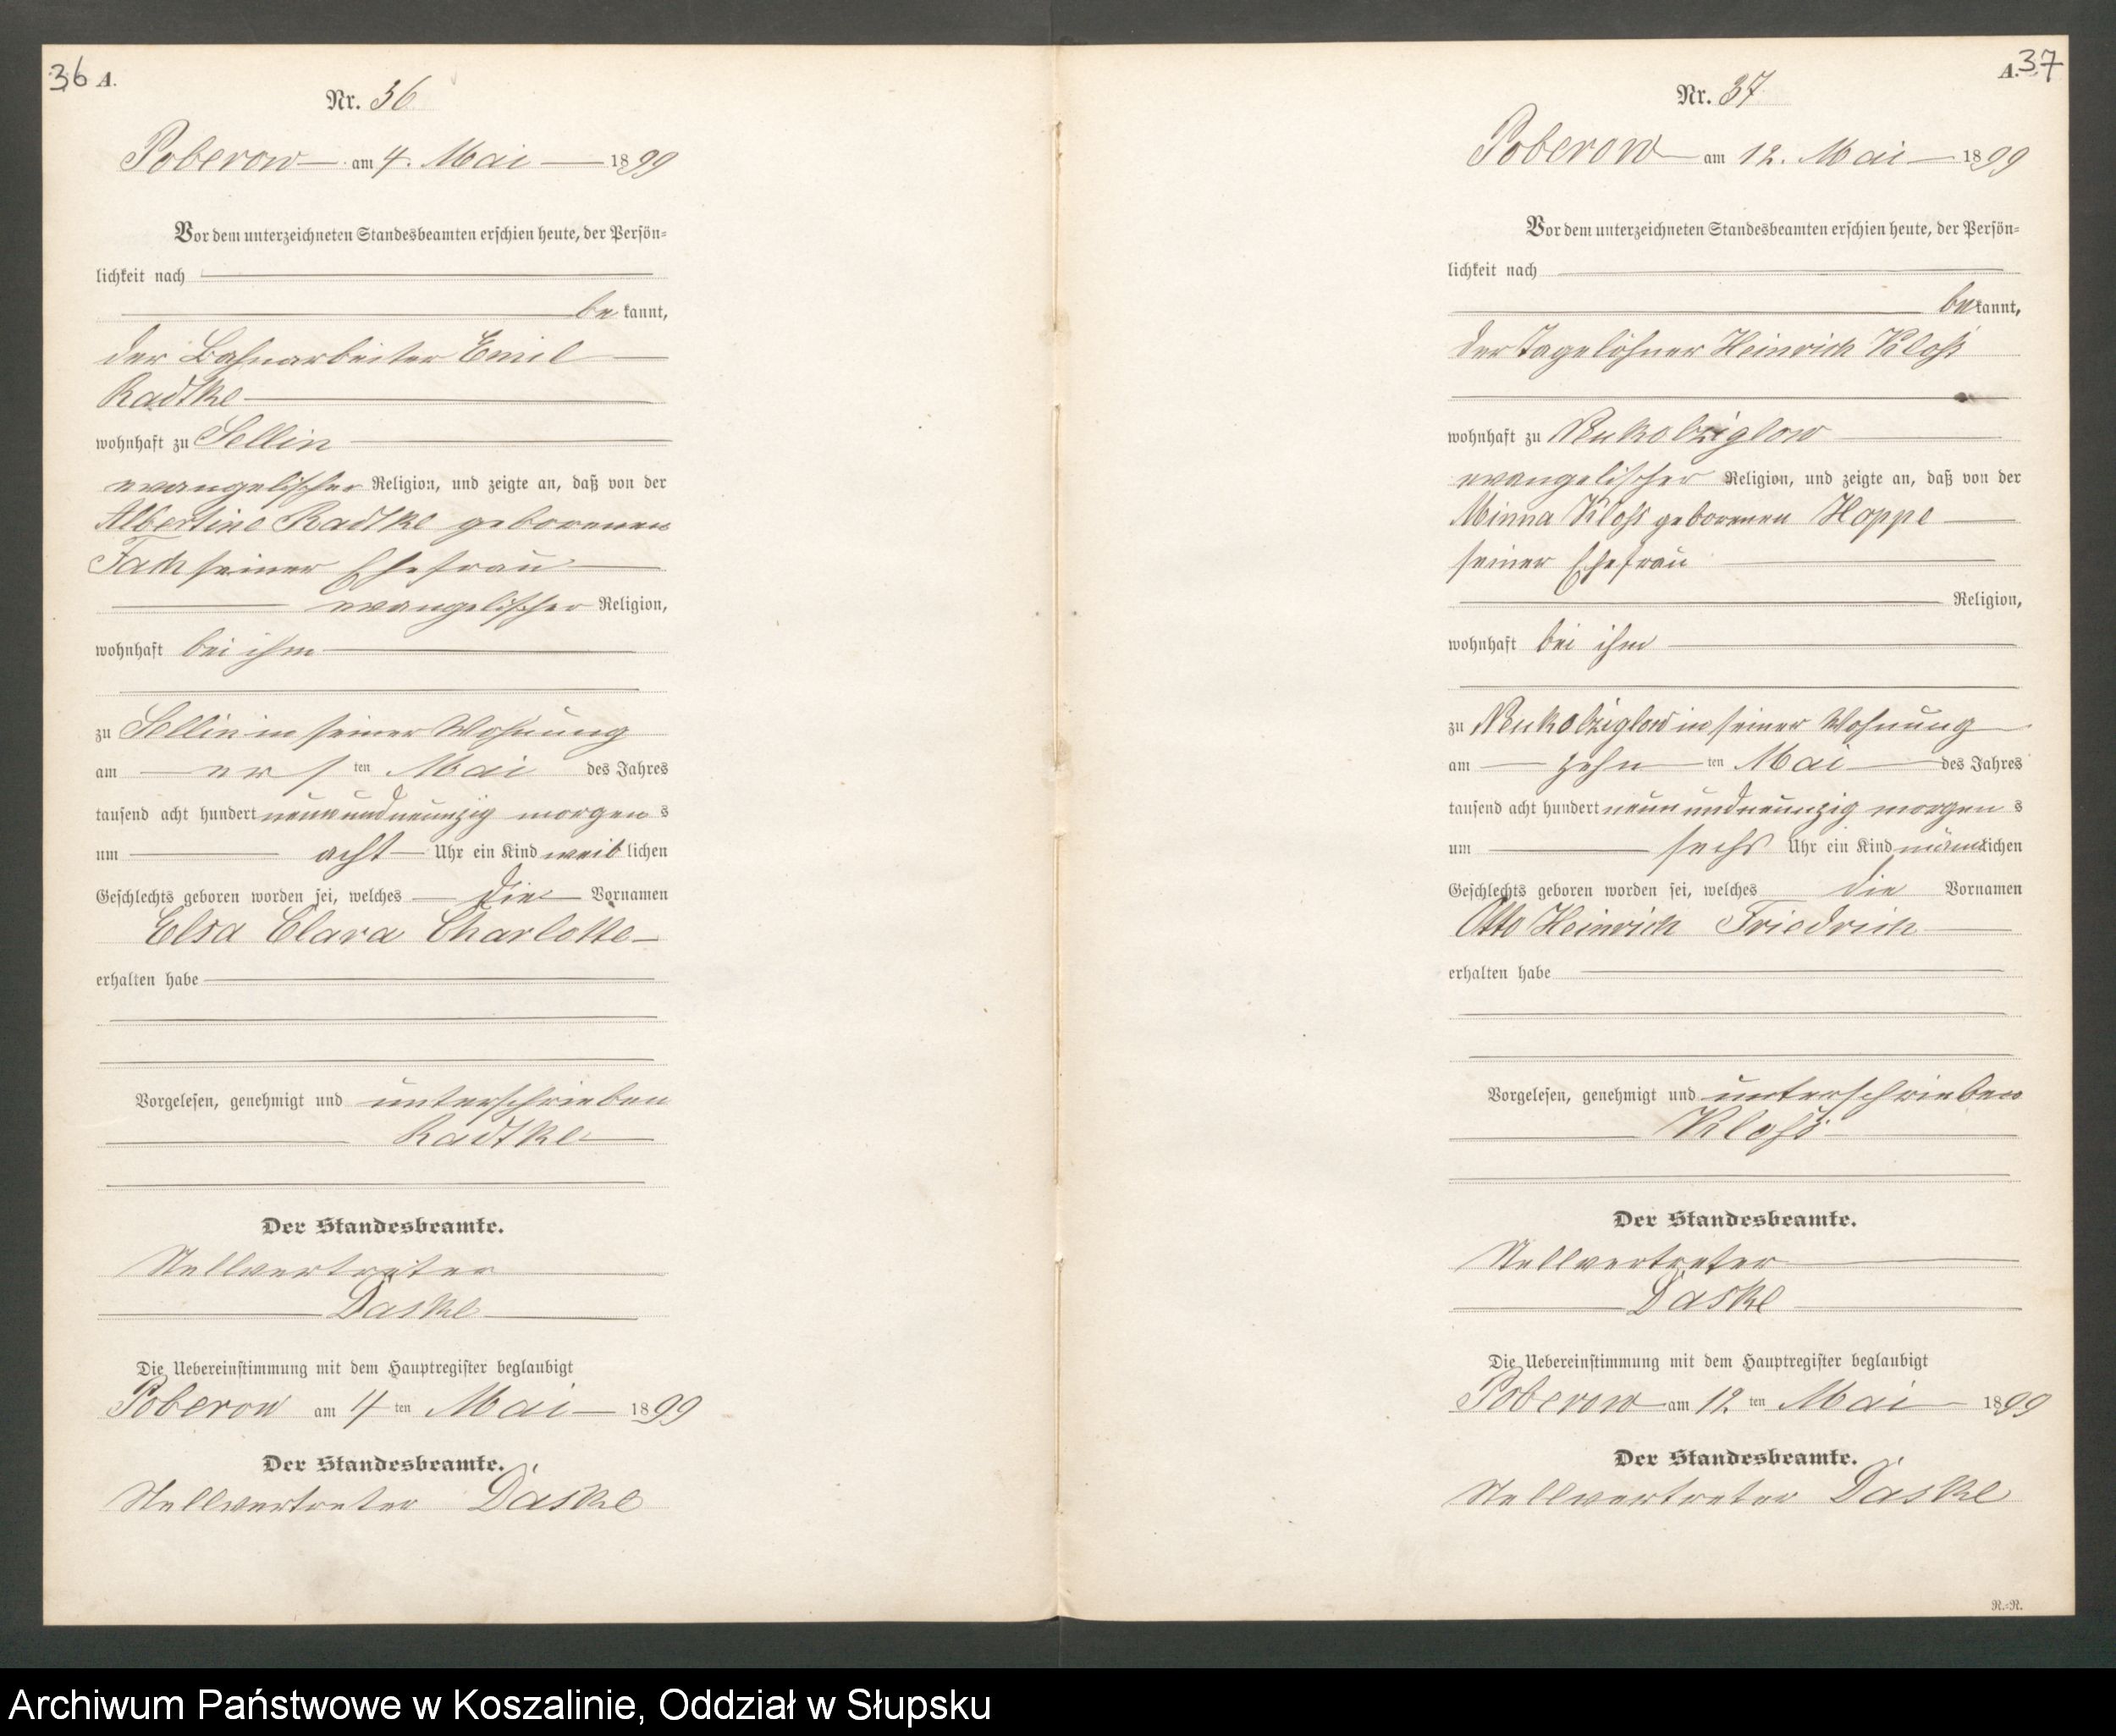 36 A.
Nr. 36
Poberow am 4. Mai 1899
Vor dem unterzeichneten Standesbeamten erschien heute, der Persön-
lichkeit nach
bekannt,
der Bahnarbeiter Emil
Radtke
wohnhaft zu Sellin
evangelischer Religion, und zeigte an, daß von der
Albertine Radtke geborenen
Fach seiner Ehefrau
evangelischer Religion,
wohnhaft bei ihm
zu Sellin in seiner Wohnung
am ersten Mai des Jahres
tausend acht hundert neunundneunzig morgens
um acht Uhr ein Kind weiblichen
Geschlechts geboren worden sei, welches die Vornamen
Elsa Clara Charlotte
erhalten habe
Vorgelesen, genehmigt und unterschrieben
Radtke
Der Standesbeamte.
Stellvertreter
Daske
Die Uebereinstimmung mit dem Hauptregister beglaubigt
Poberow am 4ten Mai 1899
Der Standesbeamte.
Stellvertreter Daske
A. 37
Nr. 37
Poberow am 12. Mai 1899
Vor dem unterzeichneten Standesbeamten erschien heute, der Persön-
lichkeit nach
bekannt,
der Tagelöhner Heinrich Kloß
wohnhaft zu Neukolziglow
evangelischer Religion, und zeigte an, daß von der
Minna Kloß geborenen Hoppe
seiner Ehefrau
Religion,
wohnhaft bei ihm
zu Neukolziglow in seiner Wohnung
am zehnten Mai des Jahres
tausend acht hundert neunundneunzig morgens
um sechs Uhr ein Kind männlichen
Geschlechts geboren worden sei, welches die Vornamen
Otto Heinrich Friedrich
erhalten habe
Vorgelesen, genehmigt und unterschrieben
Kloß
Der Standesbeamte.
Stellvertreter
Daske
Die Uebereinstimmung mit dem Hauptregister beglaubigt
Poberow am 12ten Mai 1899
Der Standesbeamte.
Stellvertreter Daske
R.-R.
Archiwum Państwowe w Koszalinie, Oddział w Słupsku